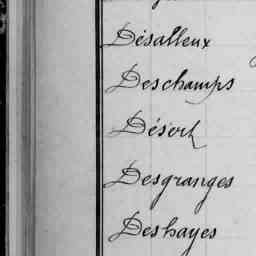 Désalleux
Deschamps
Désert
Desgranges
Deshayes